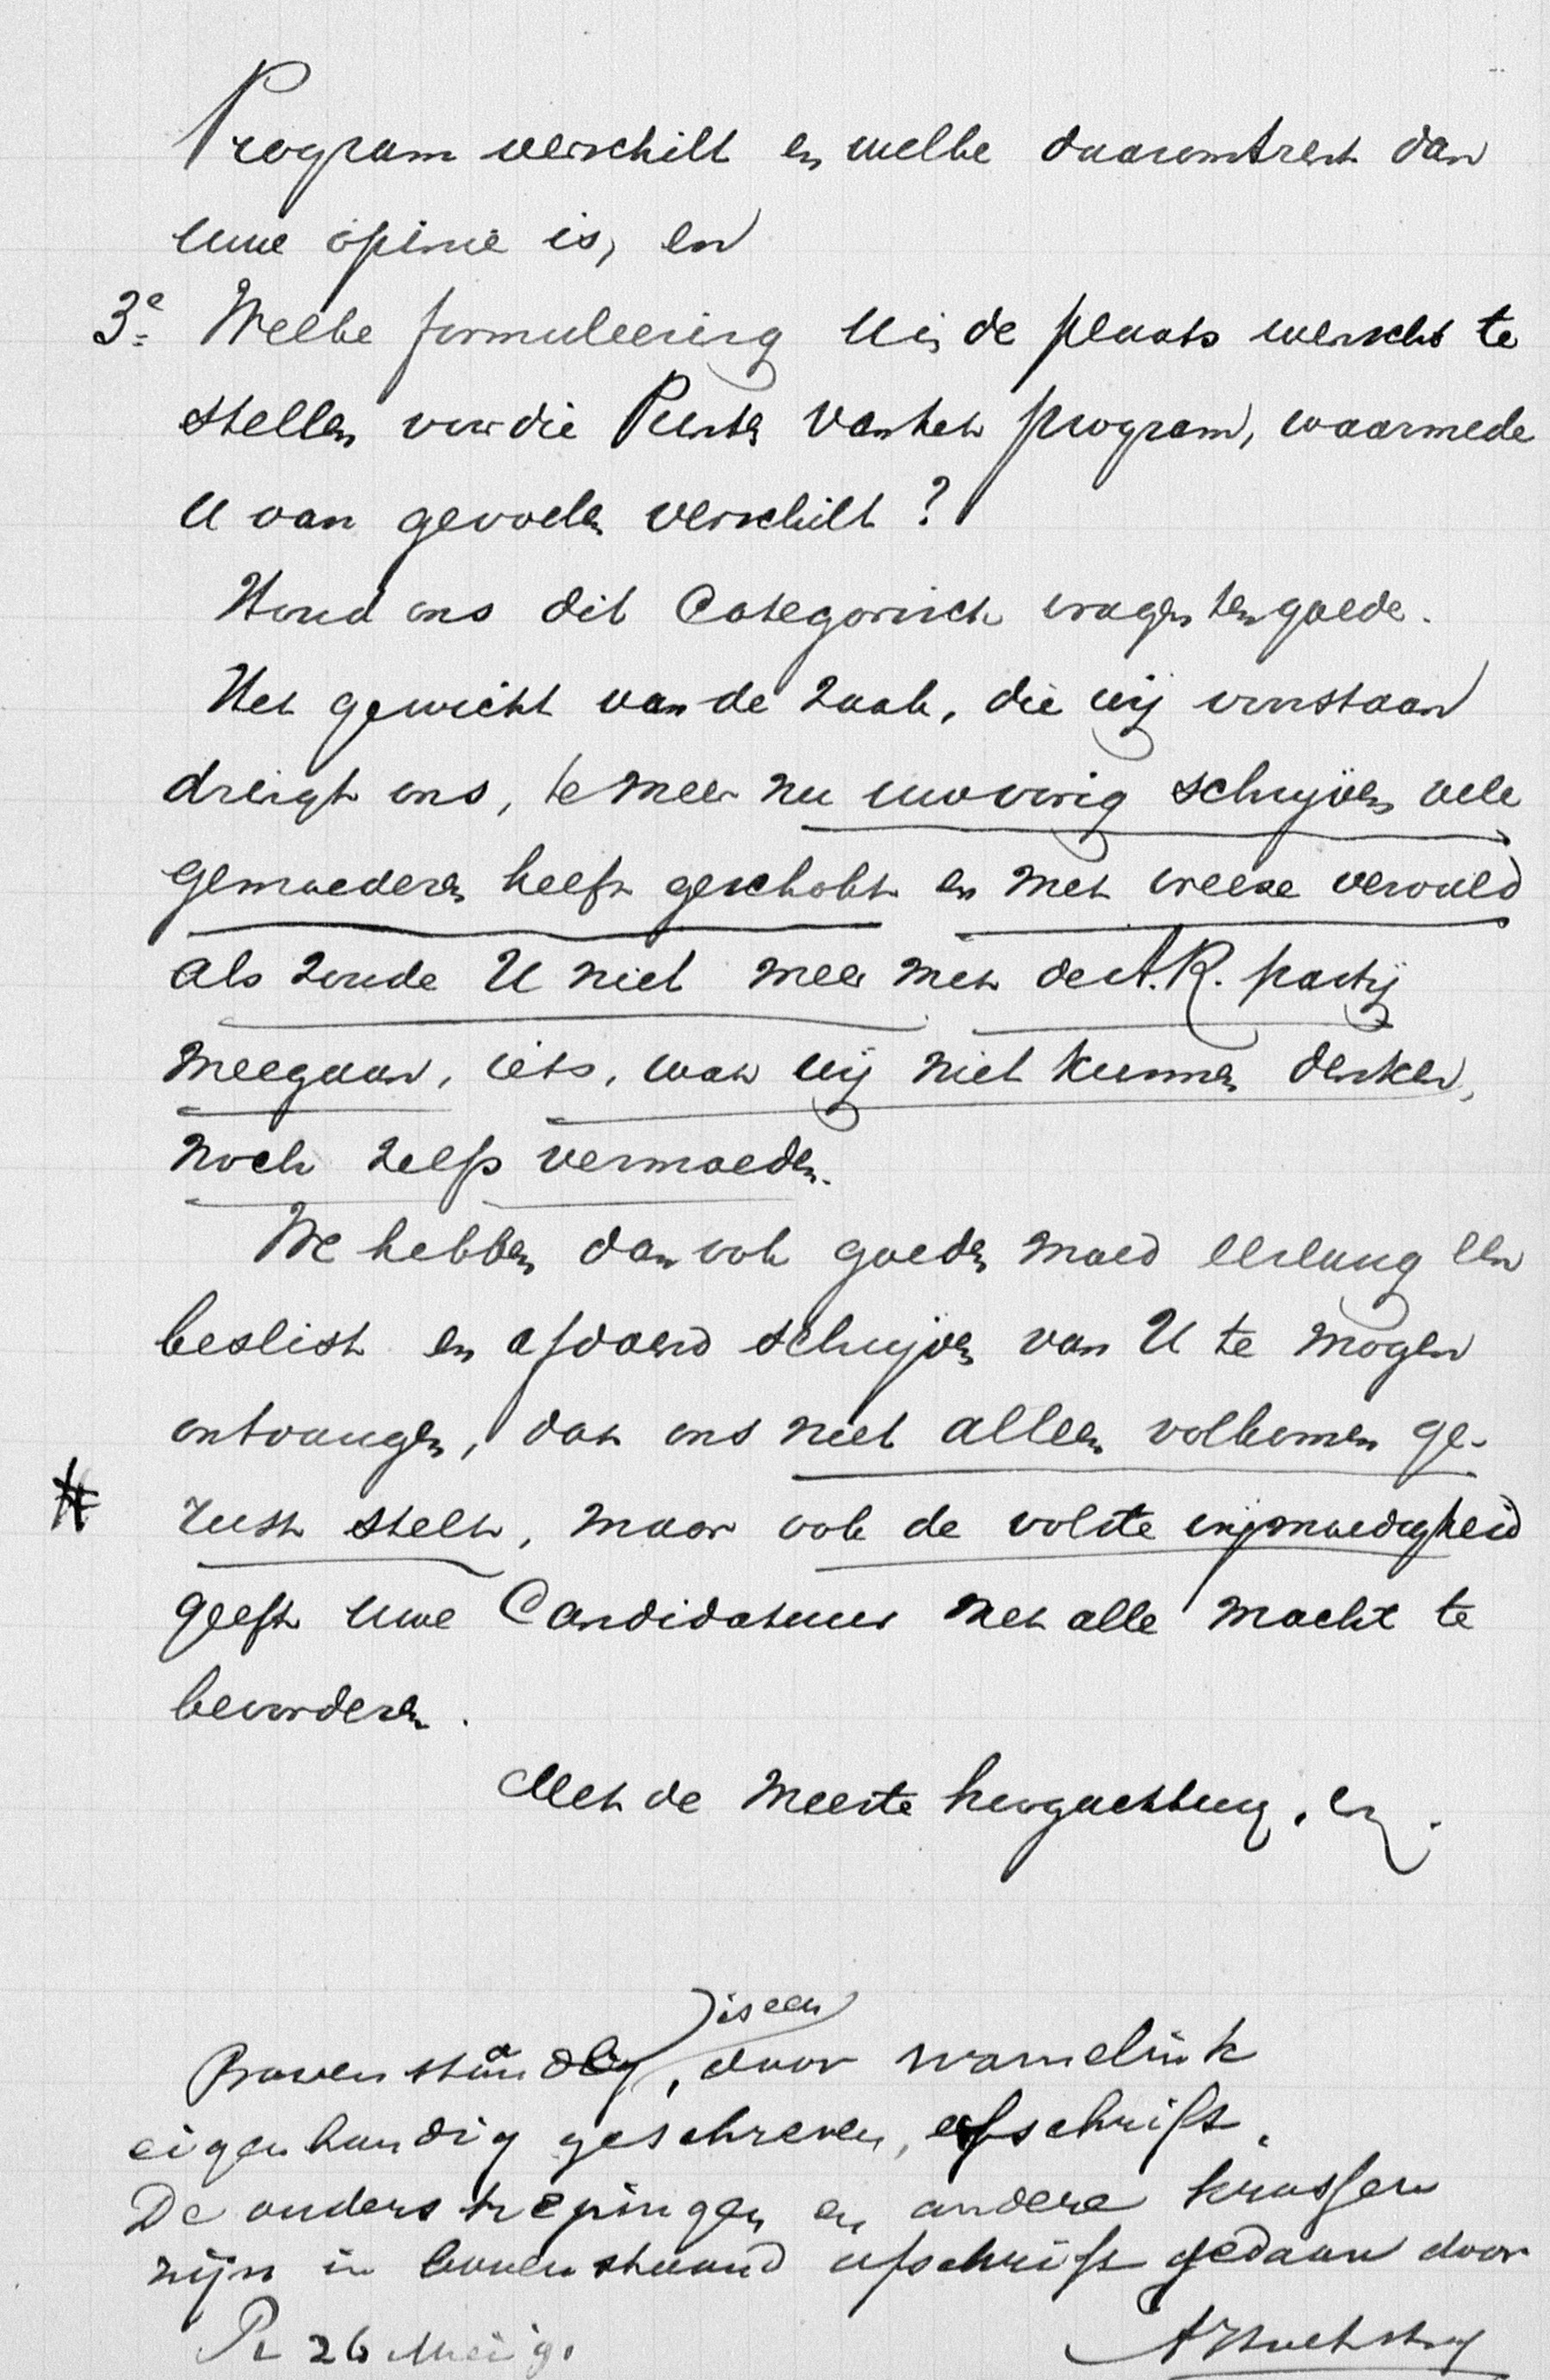 Program verschilt en welke daaromtrent dan
uwe opinie is, en
3e Welke formuleering U in de plaats wenscht te
stellen voor die Punten van het program, waarmede
U van gevoelen verschilt?
Houd ons dit Categorisch vragen ten goede.
Het gewicht van de zaak, die wij voorstaan
dringt ons, te meer nu uw vorig schrijven vele
gemoederen heeft geschokt en met vreeze vervuld
als zoude U niet meer met de A.R. partij
meegaan, iets, wat wij niet kunnen denken,
noch zelfs vermoeden.
We hebben dan ook goeden moed eerlang een
beslist en afdoend schrijven van U te mogen
ontvangen, dat ons niet alleen volkomen ge-
rust stelt, maar ook de volste vrijmoedigheid
geeft uwe Candidatuur met alle macht te
bevorderen.
Met de meeste hoogachting. enz.
is een
Bovenstaande, door
eigenhandig geschreven, afschrift.
De onderstrepingen en andere krassen
zijn in bovenstaand afschrift gedaan door
26 Mei